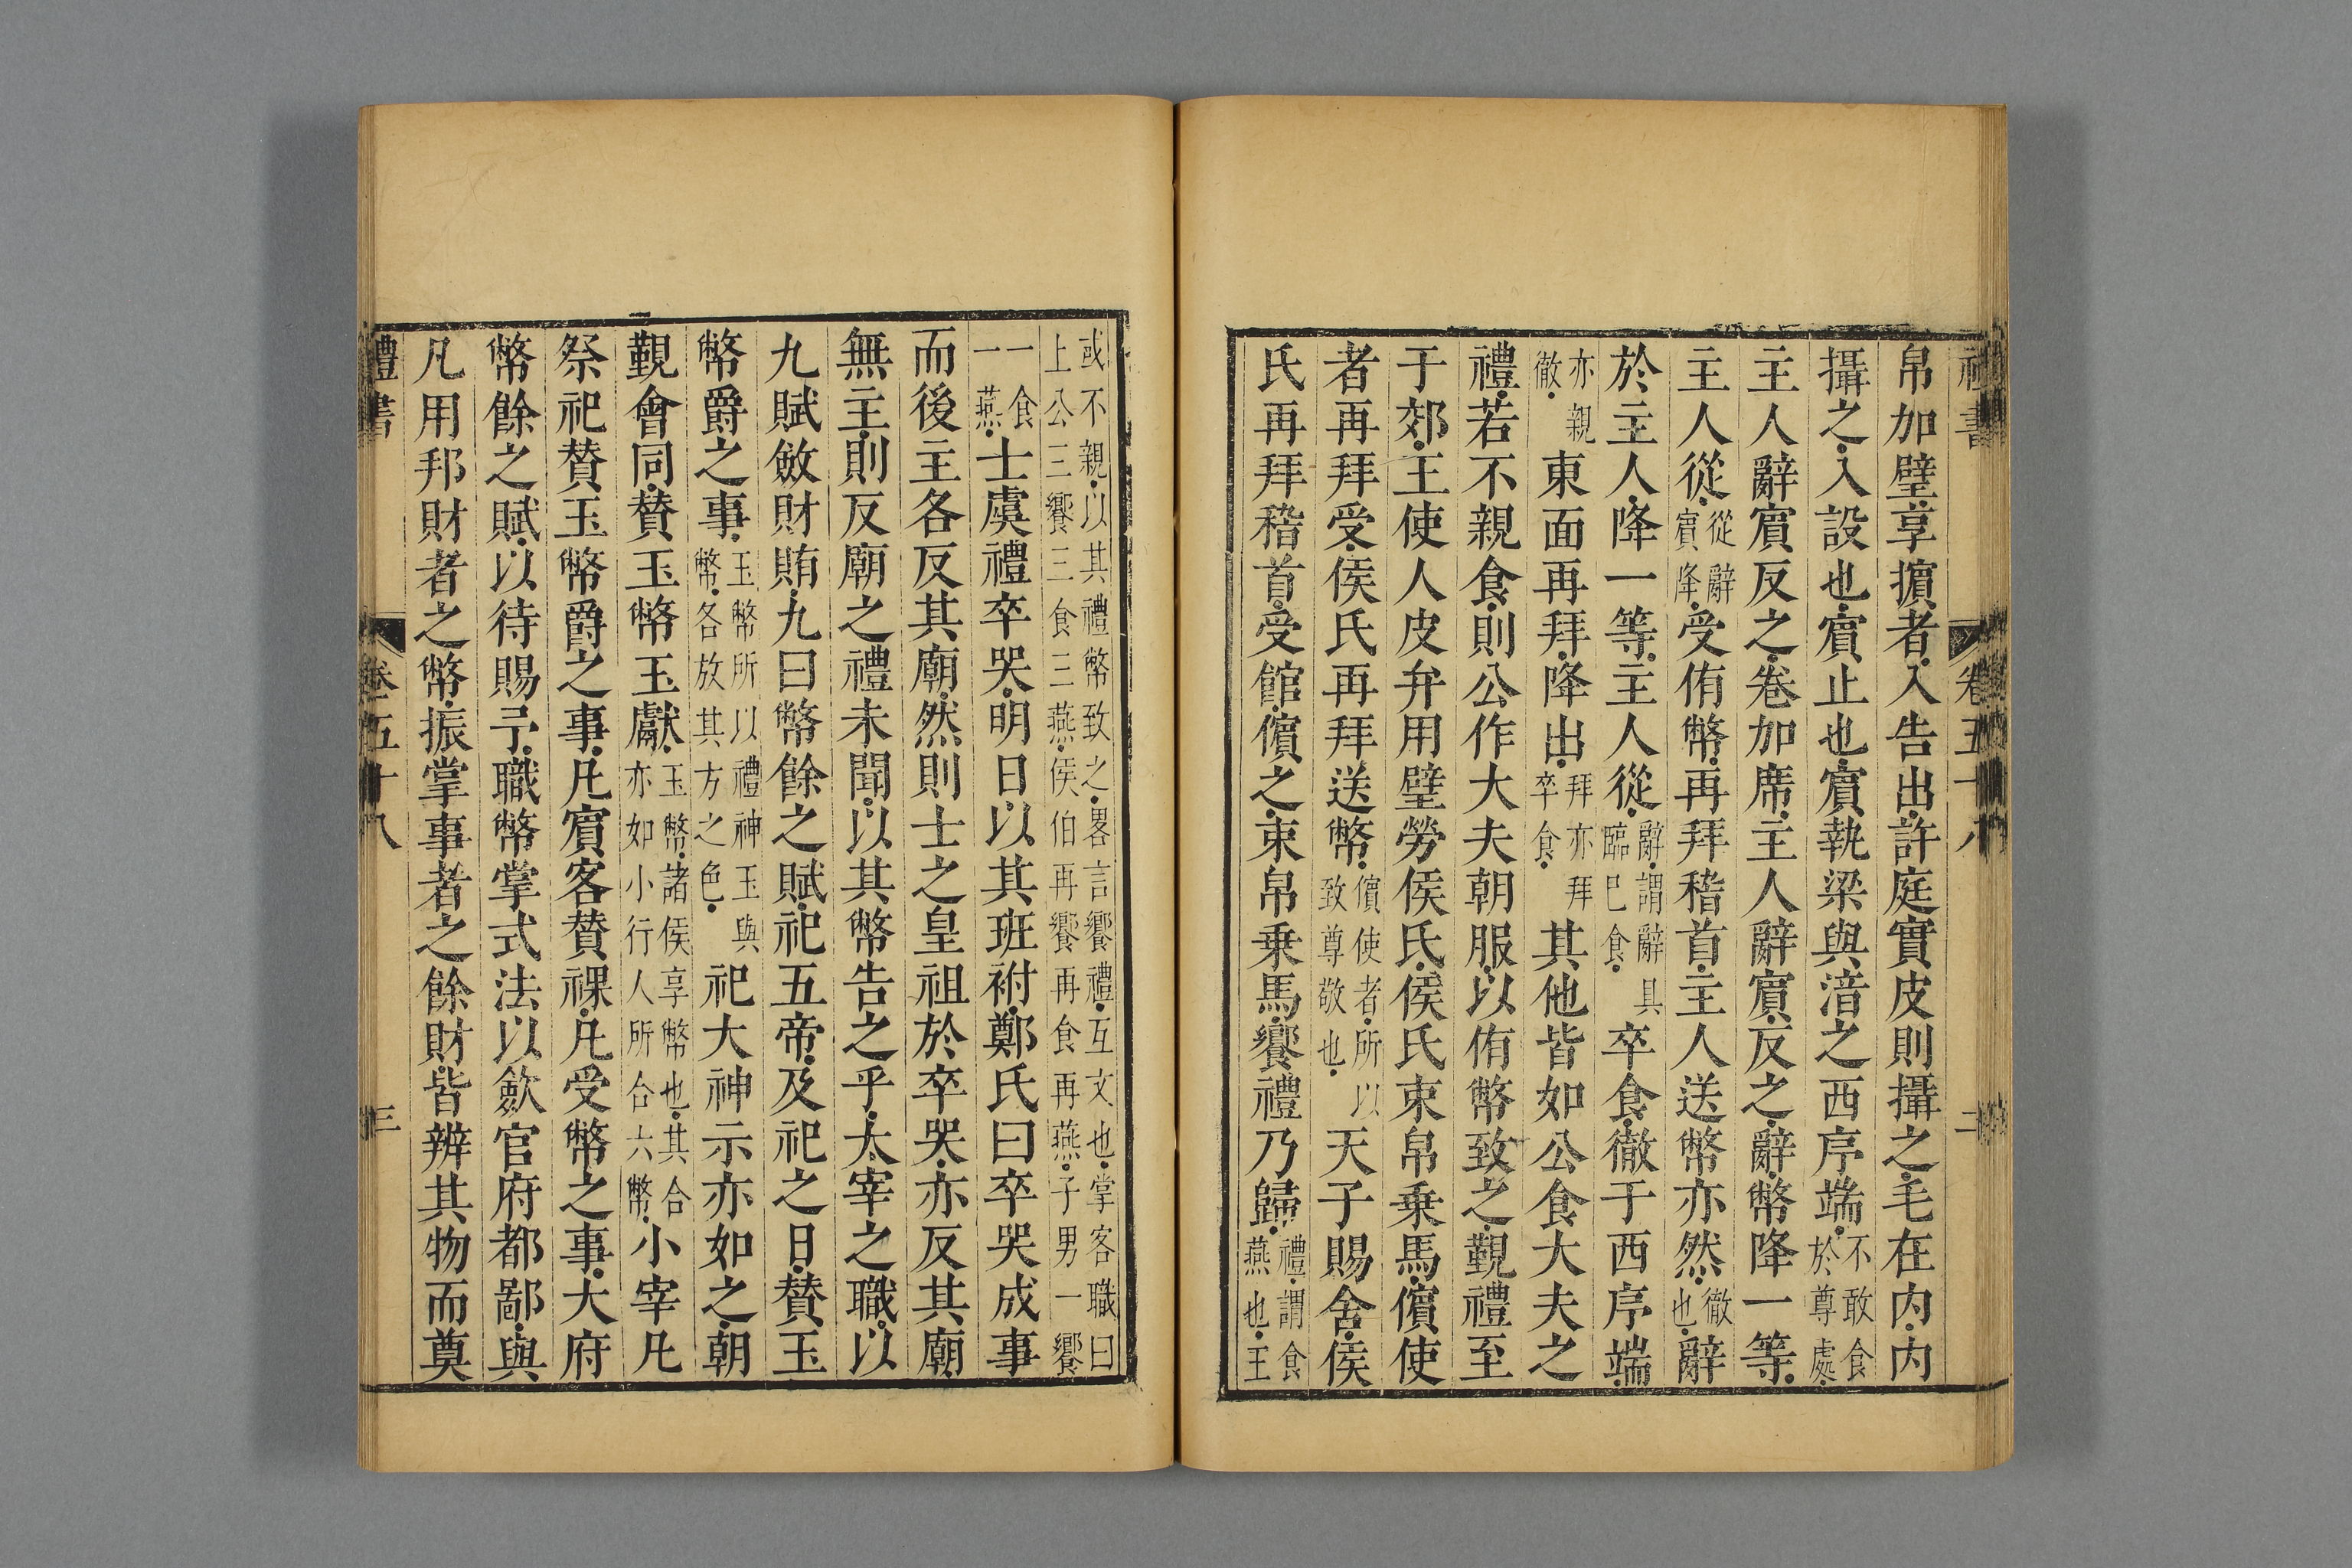 禮書 卷五十八 二
帛加璧享擯者入告出許庭實皮則攝之毛在內內
攝之入設也賓止也賓執梁與湆之西序端不敢食於尊處
主人辭賓反之卷加席主人辭賓反之辭幣降一等
主人從從辭賓降受侑幣再拜稽首主人送幣亦然徹也辭
於主人降一等主人從辭謂辭具臨已食卒食徹于西序端
亦親徹東面再拜降出拜亦拜卒食其他皆如公食大夫之
禮若不親食則公作大夫朝服以侑幣致之覲禮至
于郊王使人皮弁用璧勞侯氏侯氏束帛乗馬儐使
者再拜受侯氏再拜送幣儐使者所以致尊敬也天子賜舍侯
氏再拜稽首受館儐之束帛乗馬饗禮乃歸禮謂食燕也王
或不親以其禮幣致之畧言饗禮互文也掌客職曰
上公三饗三食三燕侯伯再饗再食再燕子男一饗
一食一燕士虞禮卒哭明日以其班祔鄭氏曰卒哭成事
而後主各反其廟然則士之皇祖於卒哭亦反其廟
無主則反廟之禮未聞以其幣告之乎太宰之職以
九賦斂財賄九曰幣餘之賦祀五帝及祀之日賛玉
幣爵之事玉幣所以禮神玉與幣各放其方之色祀大神示亦如之朝
覲會同賛玉幣玉獻玉幣諸侯享幣也其合亦如小行人所合六幣小宰凡
祭祀賛玉幣爵之事凡賓客賛祼凡受幣之事大府
幣餘之賦以待賜予職幣掌式法以斂官府都鄙與
凡用邦財者之幣振掌事者之餘財皆辨其物而奠
禮書 卷五十八 三